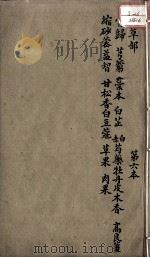 草部　第六本
歸　芎藭　藁本　白芷　芍藥　牡丹皮　木香　高良薑
縮砂蔤　益智　甘松香　白豆蔻　草果　肉果